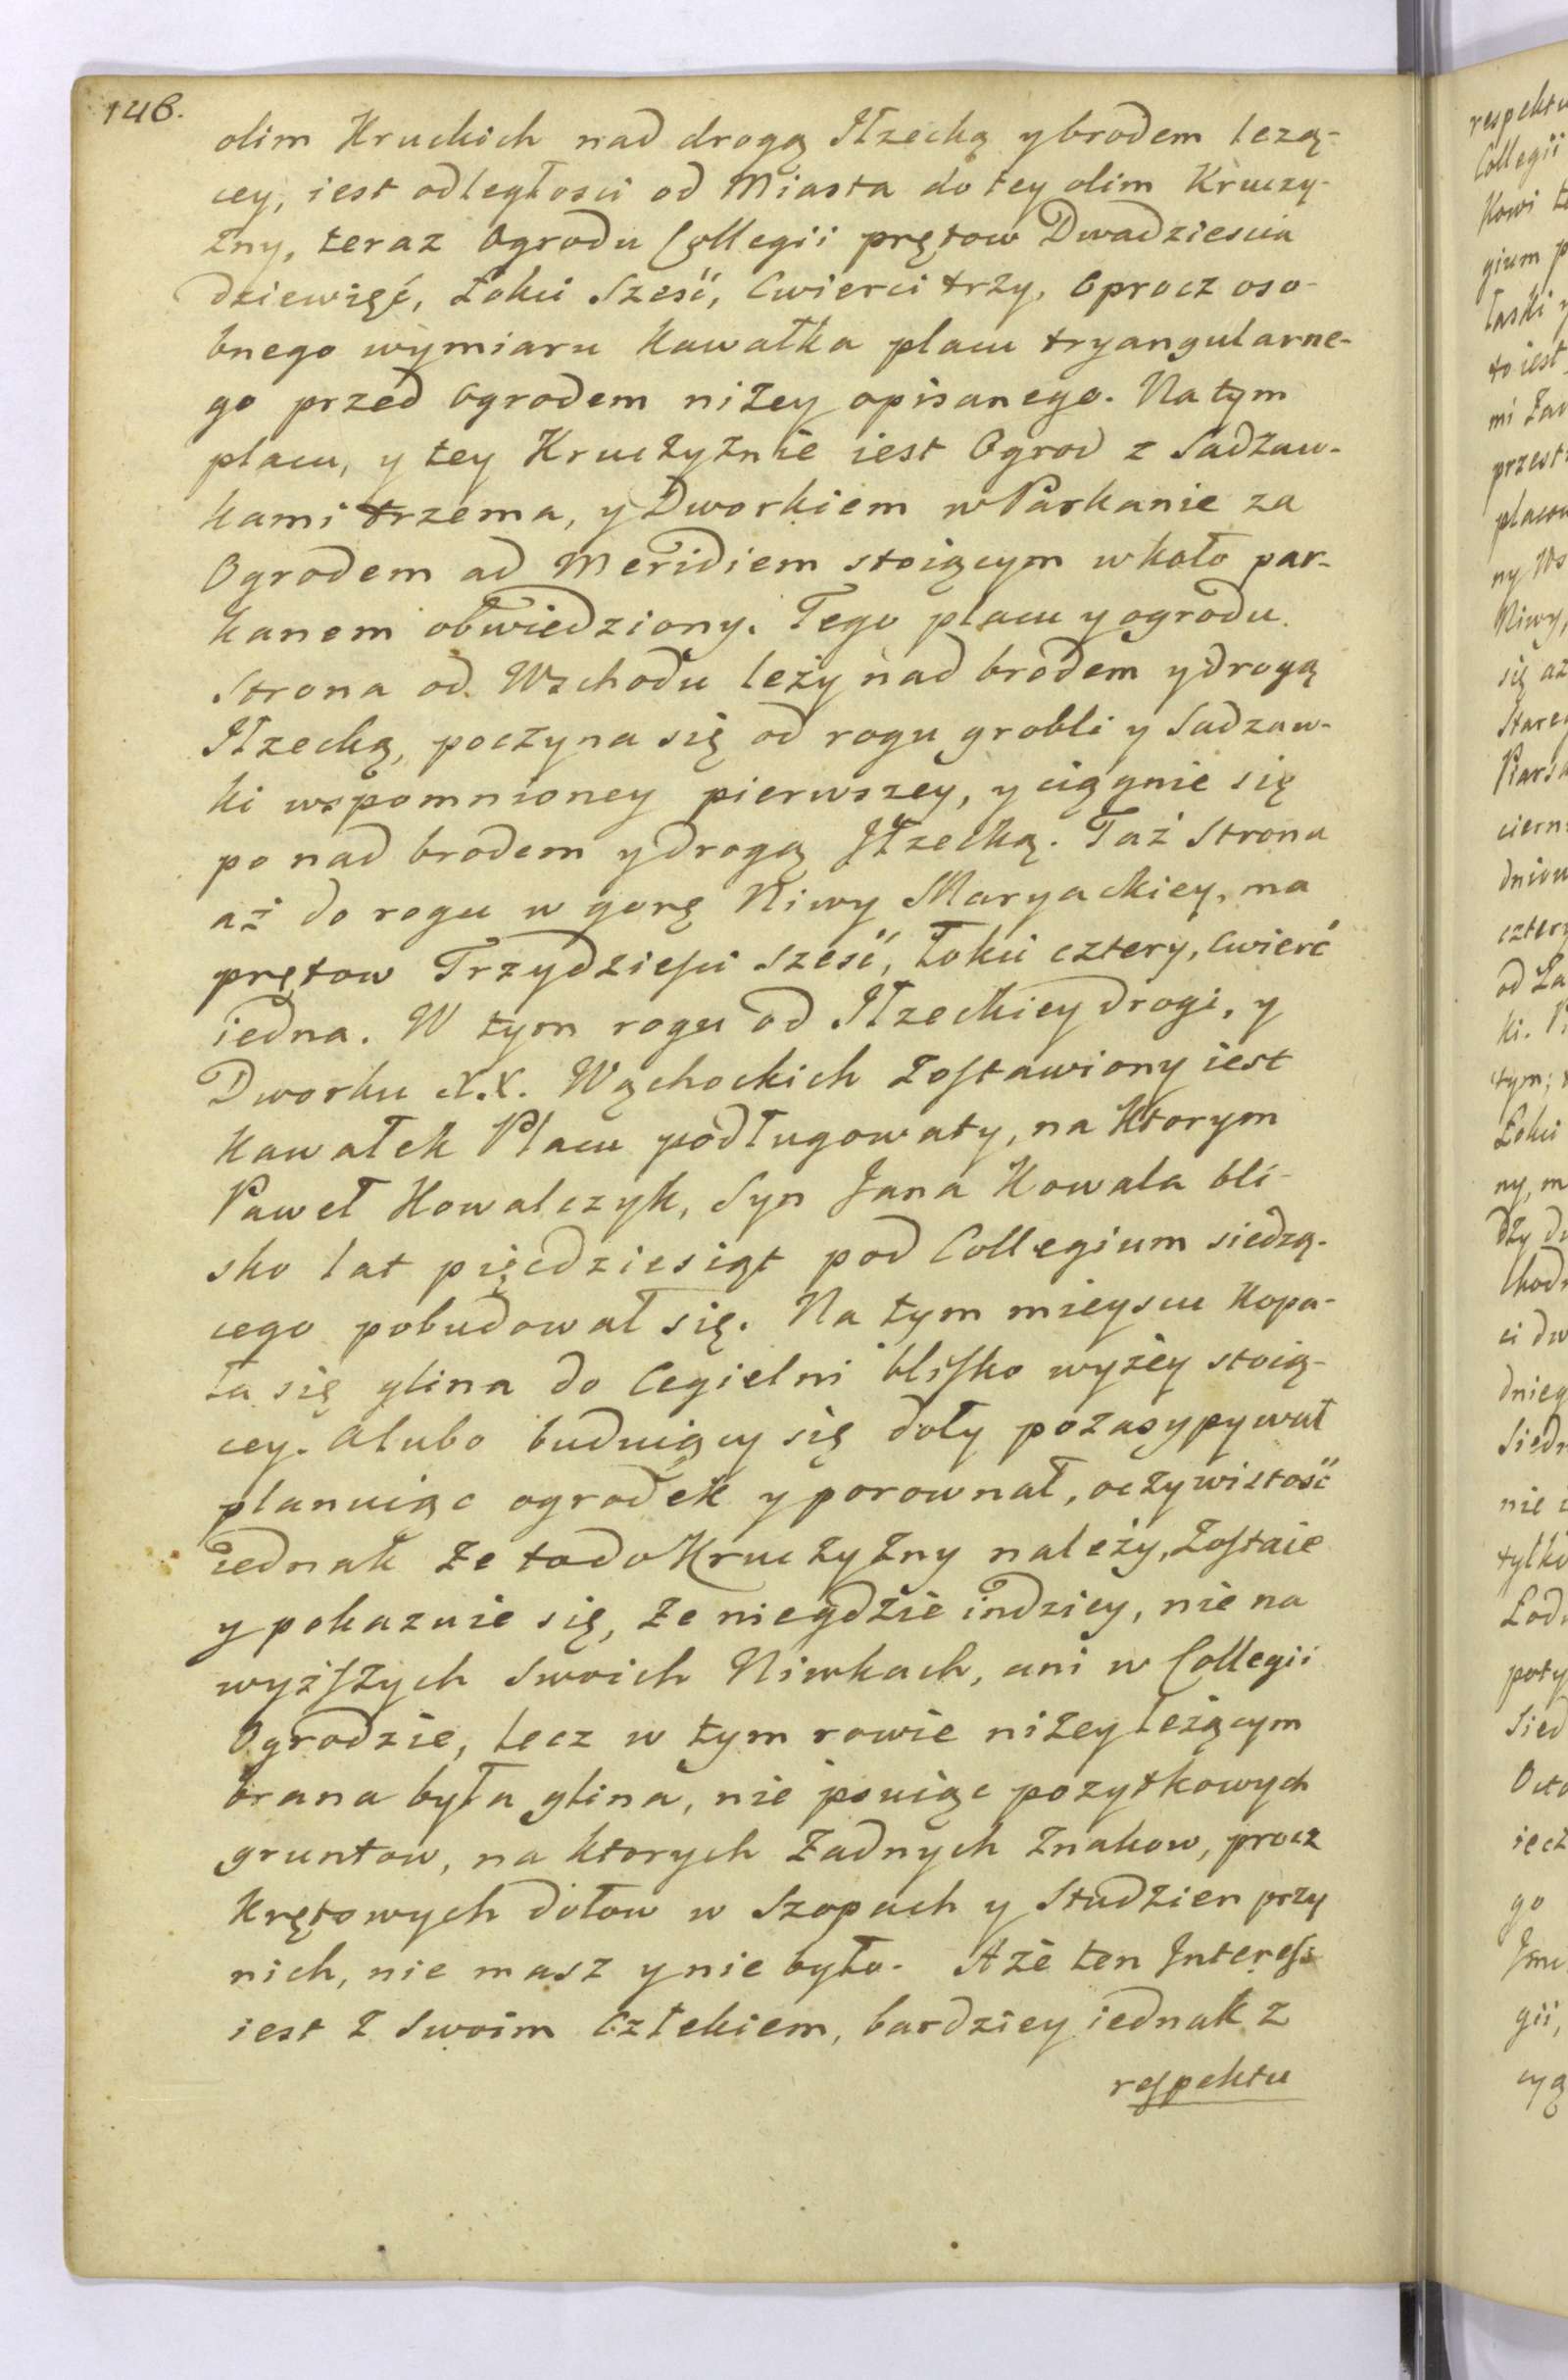 146.
olim Kruckich nad drogą Iłzecką y brodem lezą-
cey, iest odległosci od Miasta do tey olim Kruczy-
zny, teraz Ogrodu Collegii prętow Dwadziescia
dziewięć, Łokci Sześć, Cwierci trzy, Oprocz oso-
bnego wymiaru kawałka placu tryangularne-
go przed Ogrodem niżey opisanego. Na tym
placu, y tey Kruczyznie iest Ogrod z Sadzaw-
kami trzema, y Dworkiem w Parkanie za
Ogrodem ad Meridiem stoiącym w koło par-
kanem obwiedziony. Tego placu y ogrodu
Strona od Wschodu leży nad brodem y drogą
Iłzecką, poczyna się od rogu grobli y Sadzaw-
ki wspomnioney pierwszey, y ciągnie się
ponad brodem y drogą Iłzecką. Taż Strona
aż do rogu w gorę Niwy Maryackiey, ma
prętow Trzydzieści sześć, Łokci cztery, Cwierć
iedna. W tym rogu od Iłzeckiey drogi, y
Dworku X.X. Wąchockich Zostawiony iest
kawałek Placu podługowaty, na Ktorym
Paweł Kowalczyk, Syn Jana Kowala bli-
sko lat pięcdziesiąt pod Collegium siedzą-
cego pobudował się. Na tym mieyscu kopa-
ła się glina do Cegielni blisko wyżey stoią-
cey. Alubo buduiący się doły pozasypywał
planuiąc ogrodek y porownał, oczywistość
iednak Ze to do Kruczyzny należy, Zostaie
y pokazuie się, Ze niegdzie indziey, nie na
wyższych Swoich Niwkach, ani w Collegii
Ogrodzie, lecz w tym rowie niżey leżącym
brana była glina, nie psuiąc pozytkowych
gruntow, na ktorych Zadnych Znakow, procz
krętowych dołow w Szopach y Studzien przy
nich, nie masz y nie było. A że ten Interess
iest Z Swoim Człekiem, bardziey iednak z
respektu